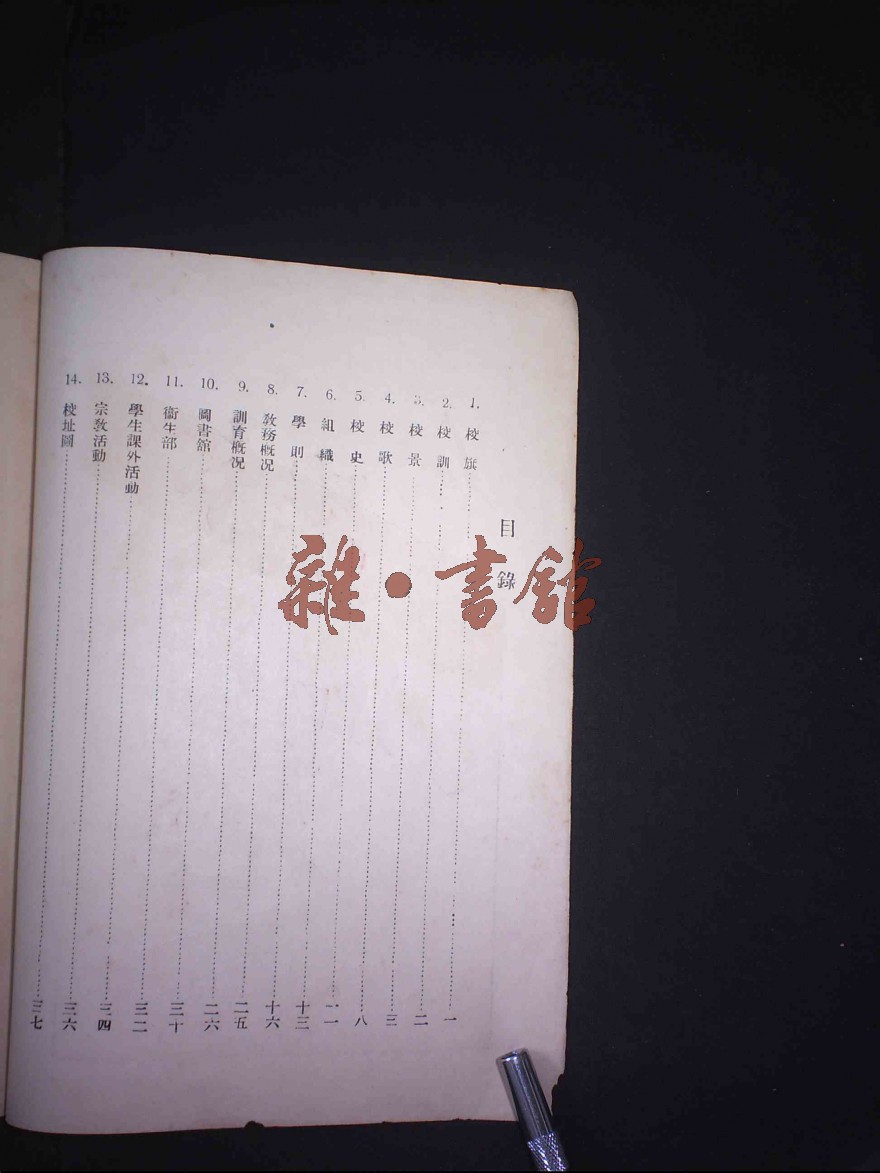 目錄
1. 校旗……一
2. 校訓……二
3. 校景……三
4. 校歌……八
5. 校史……一一
6. 組織……十三
7. 學則……十六
8. 教務概况……二五
9. 訓育概况……二六
10. 圖書館……三十
11. 衞生部……三二
12. 學生課外活動……三四
13. 宗教活動……三六
14. 校址圖……三七
雜·書館